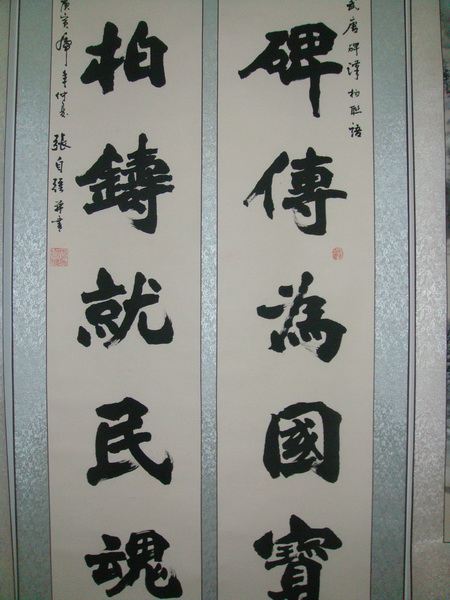 唐碑漢柏聯語
碑傳為國寶
柏鑄就民魂
庚寅虎年仲夏張自強并書